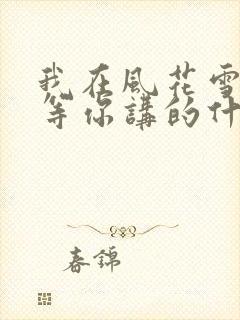 我在風花雪
等你講的什
春錦